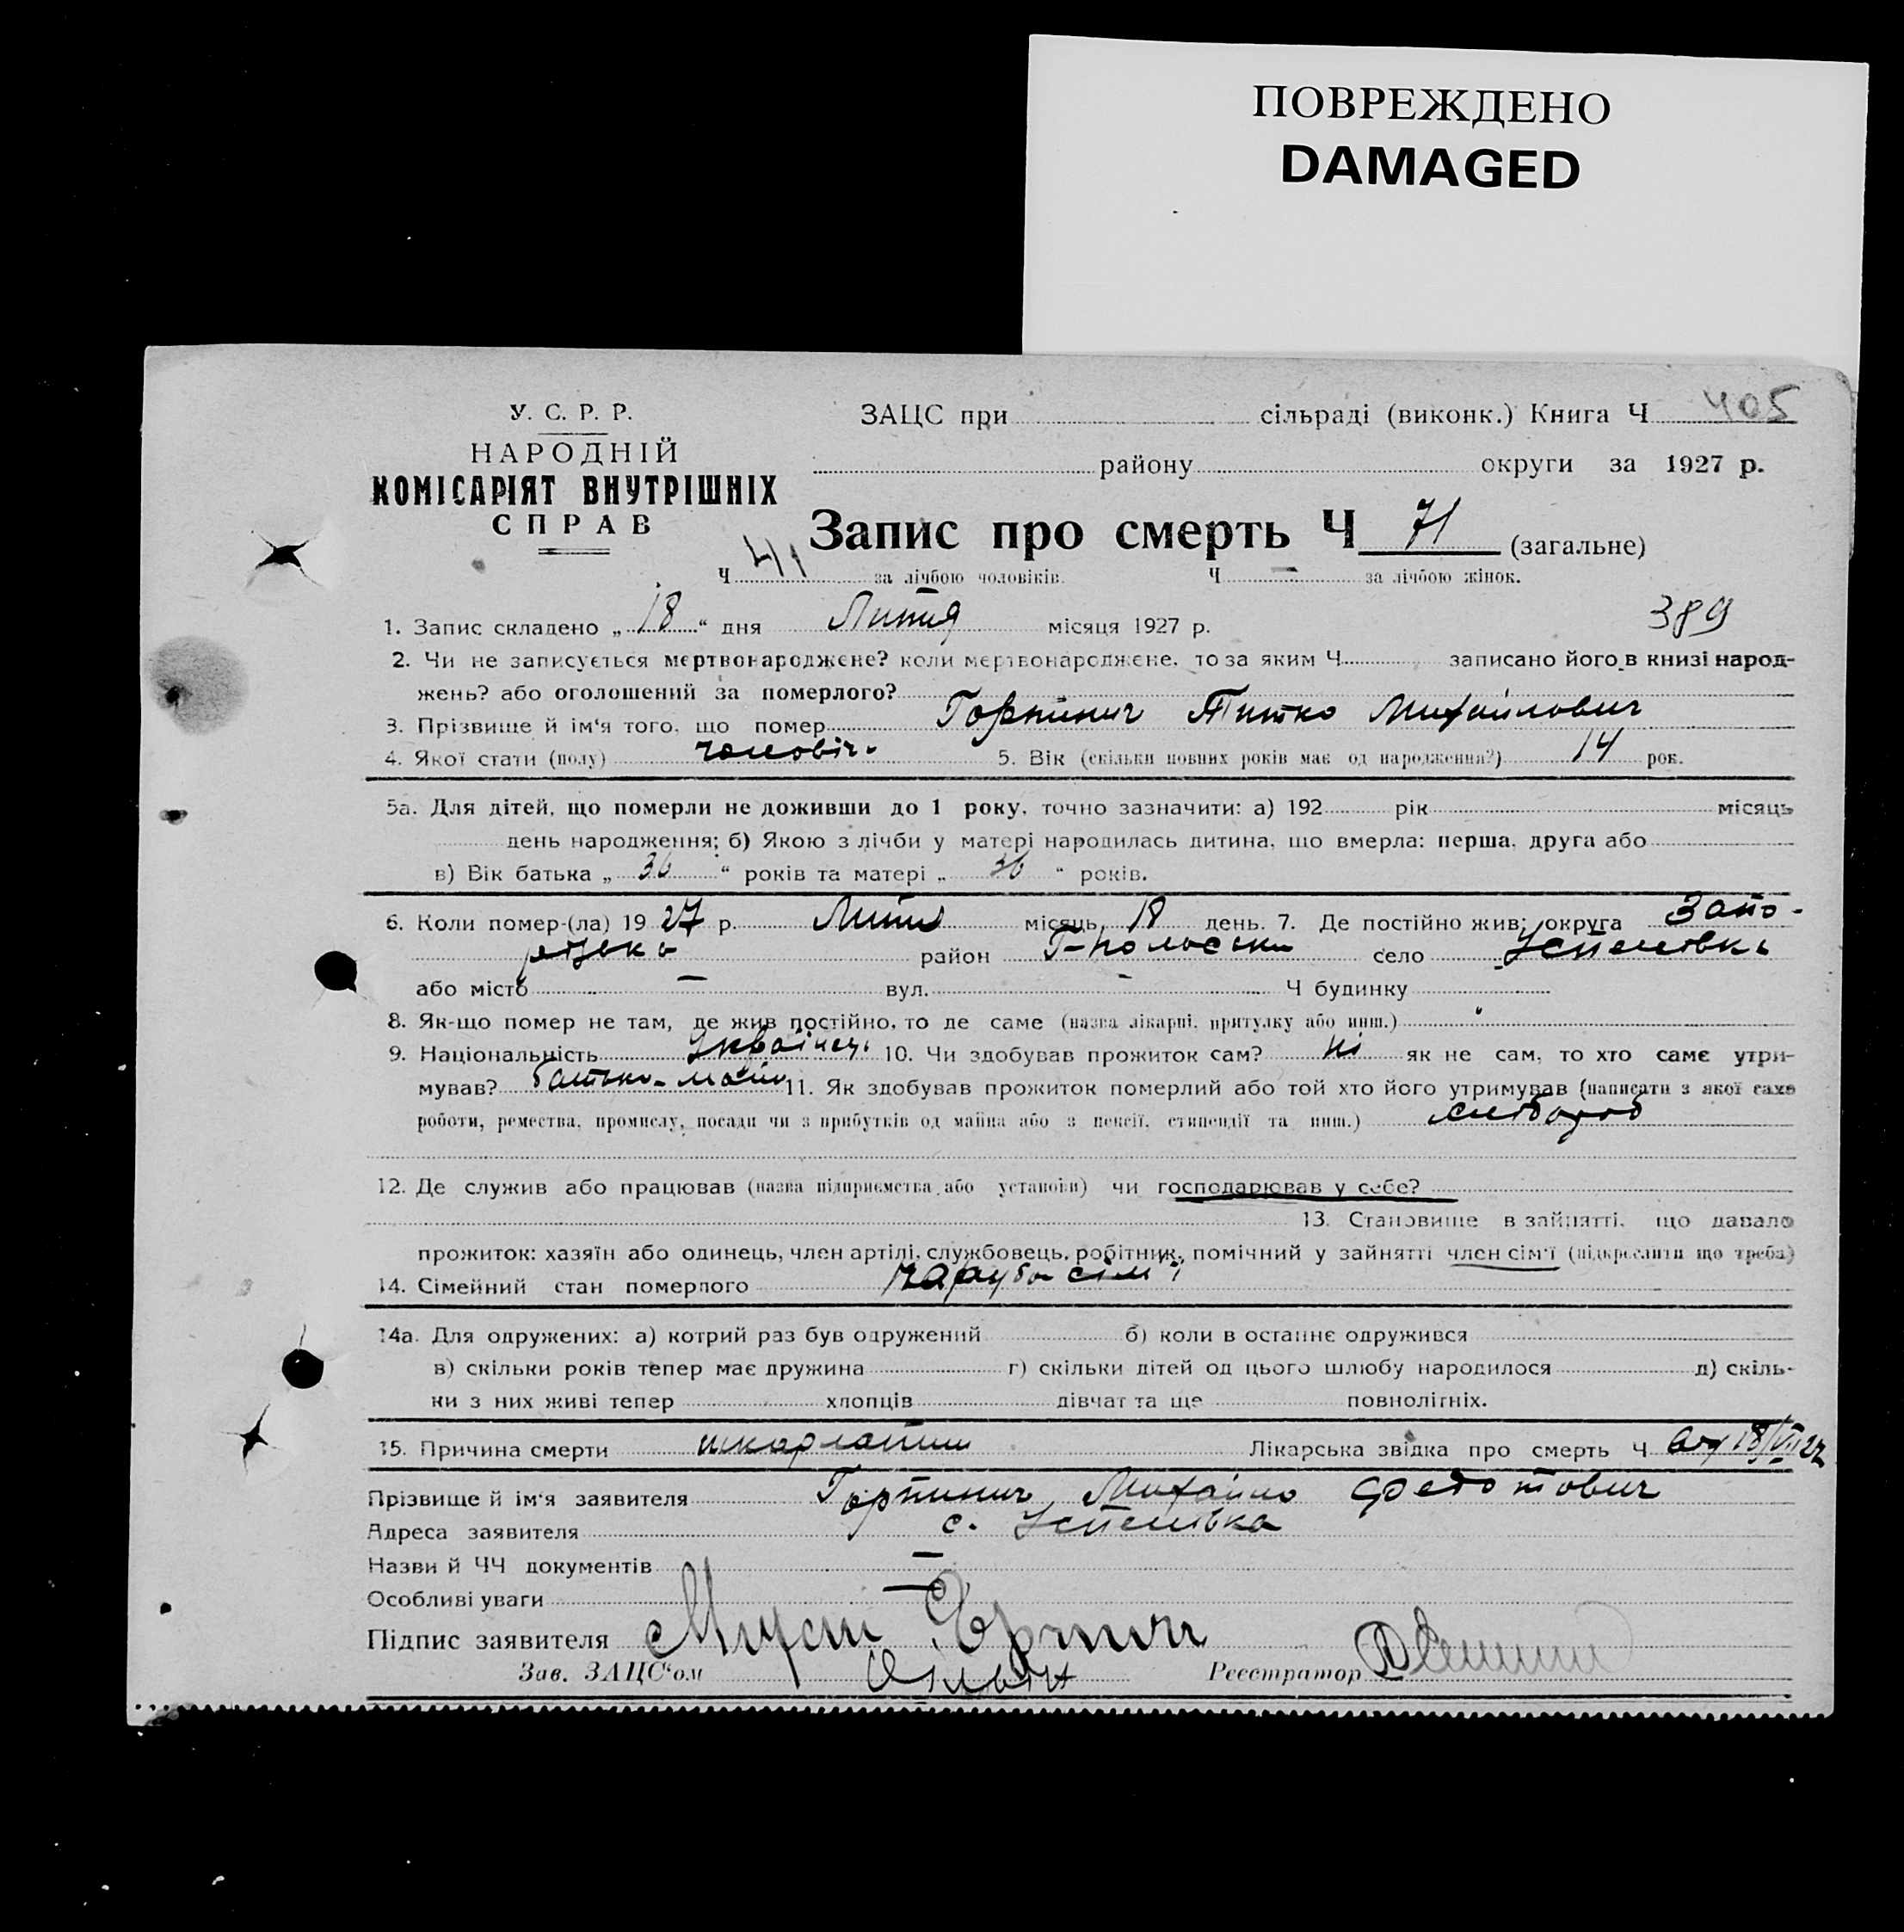 ПОВРЕЖДЕНО
DAMAGED
У. С. Р. Р.
НАРОДНІЙ
КОМІСАРІЯТ ВНУТРІШНІХ
СПРАВ
ЗАЦС при сільраді (виконк.) Книга Ч 405
району округи за 1927 р.
Запис про смерть Ч 71 (загальне)
Ч 41 за лічбою чоловіків. Ч — за лічбою жінок.
389
1. Запис складено „ 18 “ дня Липня місяця 1927 р.
2. Чи не записується мертвонароджене? коли мертвонароджене, то за яким Ч записано його в книзі народ-
жень? або оголошений за померлого?
3. Прізвище й ім‘я того, що помер Горпинич Титко Михайлович
4. Якої стати (полу) чоловіч. 5. Вік (скільки повних років має од народження?) 14 рок.
5а. Для дітей, що померли не доживши до 1 року, точно зазначити: а) 192 рік місяць
день народження; б) Якою з лічби у матері народилась дитина, що вмерла: перша, друга або
в) Вік батька „ 36 “ років та матері „ 36 “ років.
6. Коли помер-(ла) 19 27 р. Липня місяць 18 день. 7. Де постійно жив: округа Запо-
район село Успенівка
або місто — вул. — Ч будинку
8. Як-що помер не там, де жив постійно, то де саме (назва лікарні, притулку або инш.)
9. Національність Українець 10. Чи здобував прожиток сам? ні як не сам, то хто саме утри-
мував? батько-мати 11. Як здобував прожиток померлий або той хто його утримував (написати з якої саме
роботи, ремества, промислу, посади чи з прибутків од майна або з пенсії, стипендії та инш.) хлібороб
12. Де служив або працював (назва підприємства або установи) чи господарював у себе?
13. Становище в зайнятті, що давало
прожиток: хазяїн або одинець, член артілі, службовець, робітник, помічний у зайнятті член сім‘ї (підкреслити що треба)
14. Сімейний стан померлого
14а. Для одружених: а) котрий раз був одружений б) коли в останнє одружився
в) скільки років тепер має дружина г) скільки дітей од цього шлюбу народилося д) скіль-
ки з них живі тепер хлопців дівчат та ще повнолітніх.
15. Причина смерти шкарлатина Лікарська звідка про смерть Ч 18/VII 27
Прізвище й ім‘я заявителя Горпинич Михайло Федотович
Адреса заявителя с. Успенівка
Назви й ЧЧ документів —
Особливі уваги —
Підпис заявителя
Зав. ЗАЦС‘ом Реєстратор